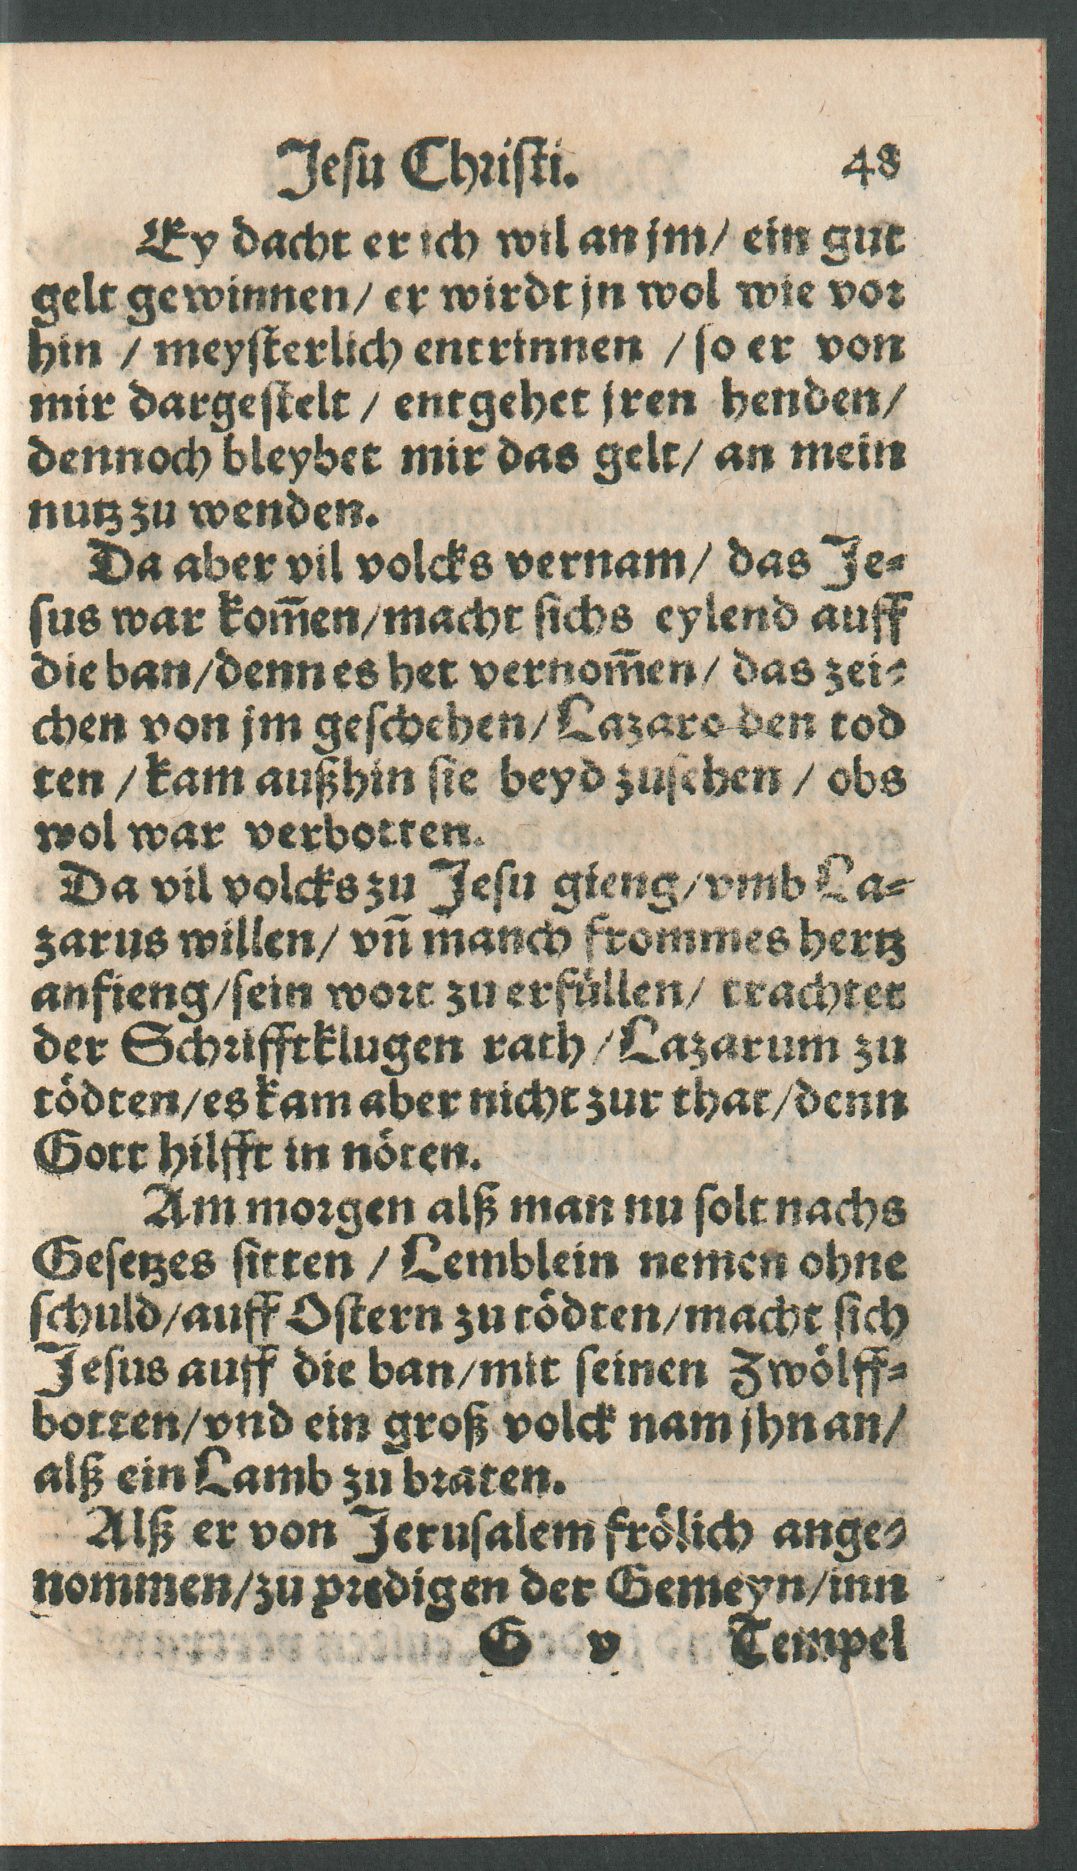 Jesu Christi. 48
Ey dacht er ich wil an jm/ ein gut
gelt gewinnen/ er wirdt jn wol wie vor
hin / meysterlich entrinnen / so er von
mir dargestelt / entgehet jren henden/
dennoch bleybet mir das gelt/ an mein
nutz zu wenden.
Da aber vil volcks vernam/ das Je-
sus war kom̄en/macht sichs eylend auff
die ban/denn es het vernom̄en/ das zei-
chen von jm geschehen/ Lazaro den tod
ten / kam außhin sie beyd zusehen / obs
wol war verbotten.
Da vil volcks zu Jesu gieng/vmb La-
zarus willen/ vn̄ manch frommes hertz
anfieng/sein wort zu erfüllen/ trachtet
der Schrifftklugen rath / Lazarum zu
tödten/es kam aber nicht zur that/denn
Gott hilfft in nöten.
Am morgen alß man nu solt nachs
Gesetzes sitten / Lemblein nemen ohne
schuld/auff Ostern zu tödten/macht sich
Jesus auff die ban/mit seinen Zwölff-
botten/vnd ein groß volck nam jhn an/
alß ein Lamb zu braten.
Alß er von Jerusalem frölich ange-
nommen/zu predigen der Gemeyn/inn
G v Tempel